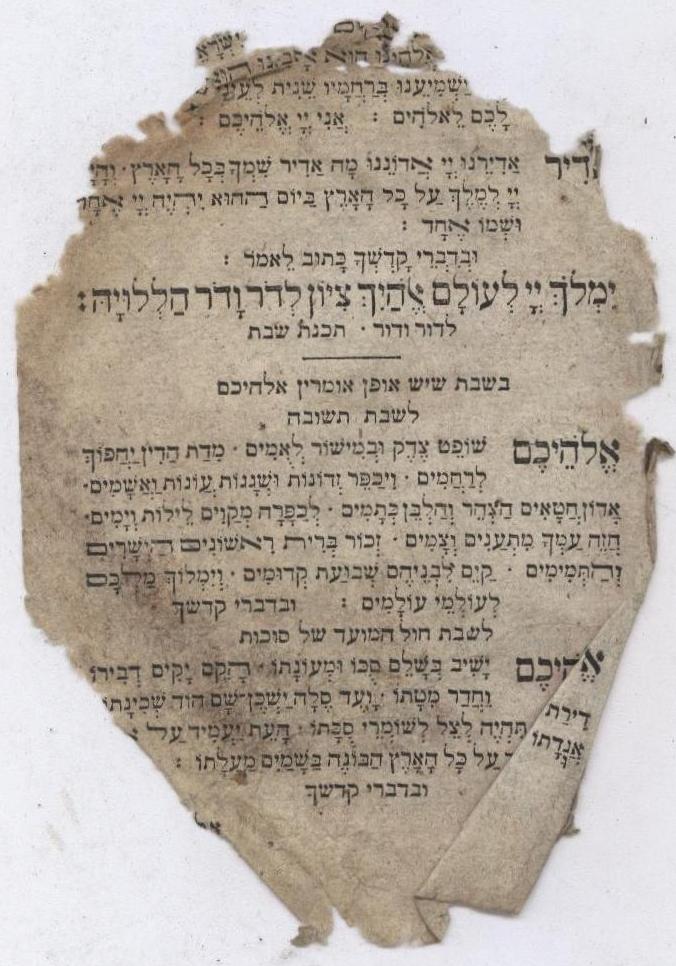 אֱלֹהֵינוּ הוּא אָבִינוּ
יַשְׁמִיעֵנוּ בְּרַחֲמָיו שֵׁנִית לְעֵינֵי
לָכֶם לֵאלֹהִים : אֲנִי יְיָ אֱלֹהֵיכֶם :
אַדִּירֵנוּ יְיָ אֲדוֹנֵנוּ מָה אַדִּיר שִׁמְךָ בְּכָל הָאָרֶץ · וְהָיָ
יְיָ לְמֶלֶךְ עַל כָּל הָאָרֶץ בַּיּוֹם הַהוּא יִהְיֶה יְיָ אֶחָד
וּשְׁמוֹ אֶחָד :
וּבְדִבְרֵי קָדְשְׁךָ כָּתוּב לֵאמֹר :
יִמְלֹךְ יְיָ לְעוֹלָם אֱלֹהַיִךְ צִיּוֹן לְדֹר וָדֹר הַלְלוּיָהּ :
לדור ודור · תכנת שבת
בשבת שיש אופן אומרין אלהיכם
לשבת תשובה
אֱלֹהֵיכֶם שׁוֹפֵט צֶדֶק וּבְמִישׁוֹר לְאֻמִּים · מִדַּת הַדִּין יַהֲפוֹךְ
לְרַחֲמִים · וִיכַפֵּר זְדוֹנוֹת וּשְׁגָגוֹת עֲוֹנוֹת וַאֲשָׁמִים ·
אָדוֹן חֲטָאִים הַצְהֵר וְהַלְבֵּן כְּתָמִים · לְכַפָּרָה מְקַוִּים לֵילוֹת וְיָמִים ·
חֲזֵה עַמְּךָ מִתְעַנִּים וְצָמִים · זְכוֹר בְּרִית רִאשׁוֹנִים הַיְשָׁרִים
וְהַתְּמִימִים · קַיֵּם לִבְנֵיהֶם שְׁבוּעַת קְדוּמִים · וְיִמְלוֹךְ מַלְכָּם
לְעוֹלְמֵי עוֹלָמִים : ובדברי קדשך
לשבת חול המועד של סוכות
אֱלֹהֵיכֶם יָשִׁיב בְּשָׁלֵם סֻכּוֹ וּמְעוֹנָתוֹ · הֲקֵם יָקִים דְּבִירוֹ
וַחֲדַר מִטָּתוֹ · וָעֶד סֶלָה יְשַׁכֶּן־שָׁם הוֹד שְׁכִינָתוֹ
דִּירַת תִּהְיֶה לְצֵל לְשׁוֹמְרֵי סֻכָּתוֹ · הָעֵת יַעֲמִיד עַל
אֲגֻדָּתוֹ עַל כָּל הָאָרֶץ הַבּוֹנֶה בַּשָּׁמַיִם מַעֲלֹתוֹ :
ובדברי קדשך